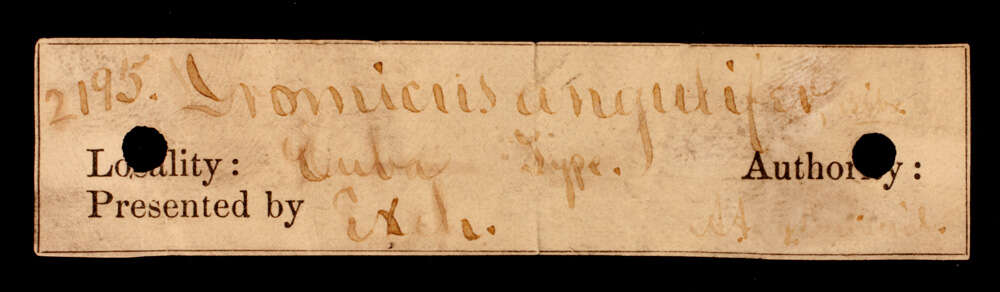 2195. Dromicus angulifer, Bibr.
Locality: Cuba Type. Authority:
Presented by Exch.